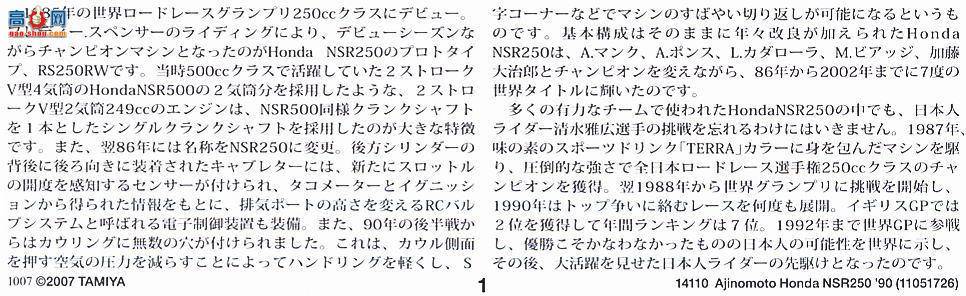 taobao.com
85年の世界ロードレースグランプリ250ccクラスにデビュー。
ー.スペンサーのライディングにより、デビューシーズンな
がらチャンピオンマシンとなったのがHonda NSR250のプロトタイ
プ、RS250RWです。当時500ccクラスで活躍していた2ストローク
V型4気筒のHondaNSR500の2気筒分を採用したような、2ストロ
ークV型2気筒249ccのエンジンは、NSR500同様クランクシャフト
を1本としたシングルクランクシャフトを採用したのが大きな特徴
です。また、翌86年には名称をNSR250に変更。後方シリンダーの
背後に後ろ向きに装着されたキャブレターには、新たにスロットル
の開度を感知するセンサーが付けられ、タコメーターとイグニッシ
ョンから得られた情報をもとに、排気ポートの高さを変えるRCバル
ブシステムと呼ばれる電子制御装置も装備。また、90年の後半戦か
らはカウリングに無数の穴が付けられました。これは、カウル側面
を押す空気の圧力を減らすことによってハンドリングを軽くし、S
字コーナーなどでマシンのすばやい切り返しが可能になるというも
のです。基本構成はそのままに年々改良が加えられたHonda
NSR250は、A.マンク、A.ポンス、L.カダローラ、M.ビアッジ、加藤
大治郎とチャンピオンを変えながら、86年から2002年までに7度の
世界タイトルに輝いたのです。
多くの有力なチームで使われたHondaNSR250の中でも、日本人
ライダー清水雅広選手の挑戦を忘れるわけにはいきません。1987年、
味の素のスポーツドリンク「TERRA」カラーに身を包んだマシンを駆
り、圧倒的な強さで全日本ロードレース選手権250ccクラスのチャ
ンピオンを獲得。翌1988年から世界グランプリに挑戦を開始し、
1990年はトップ争いに絡むレースを何度も展開。イギリスGPでは
2位を獲得して年間ランキングは7位。1992年まで世界GPに参戦
し、優勝こそかなわなかったものの日本人の可能性を世界に示し、
その後、大活躍を見せた日本人ライダーの先駆けとなったのです。
1007 ©2007 TAMIYA
1
14110 Ajinomoto Honda NSR250 '90 (11051726)